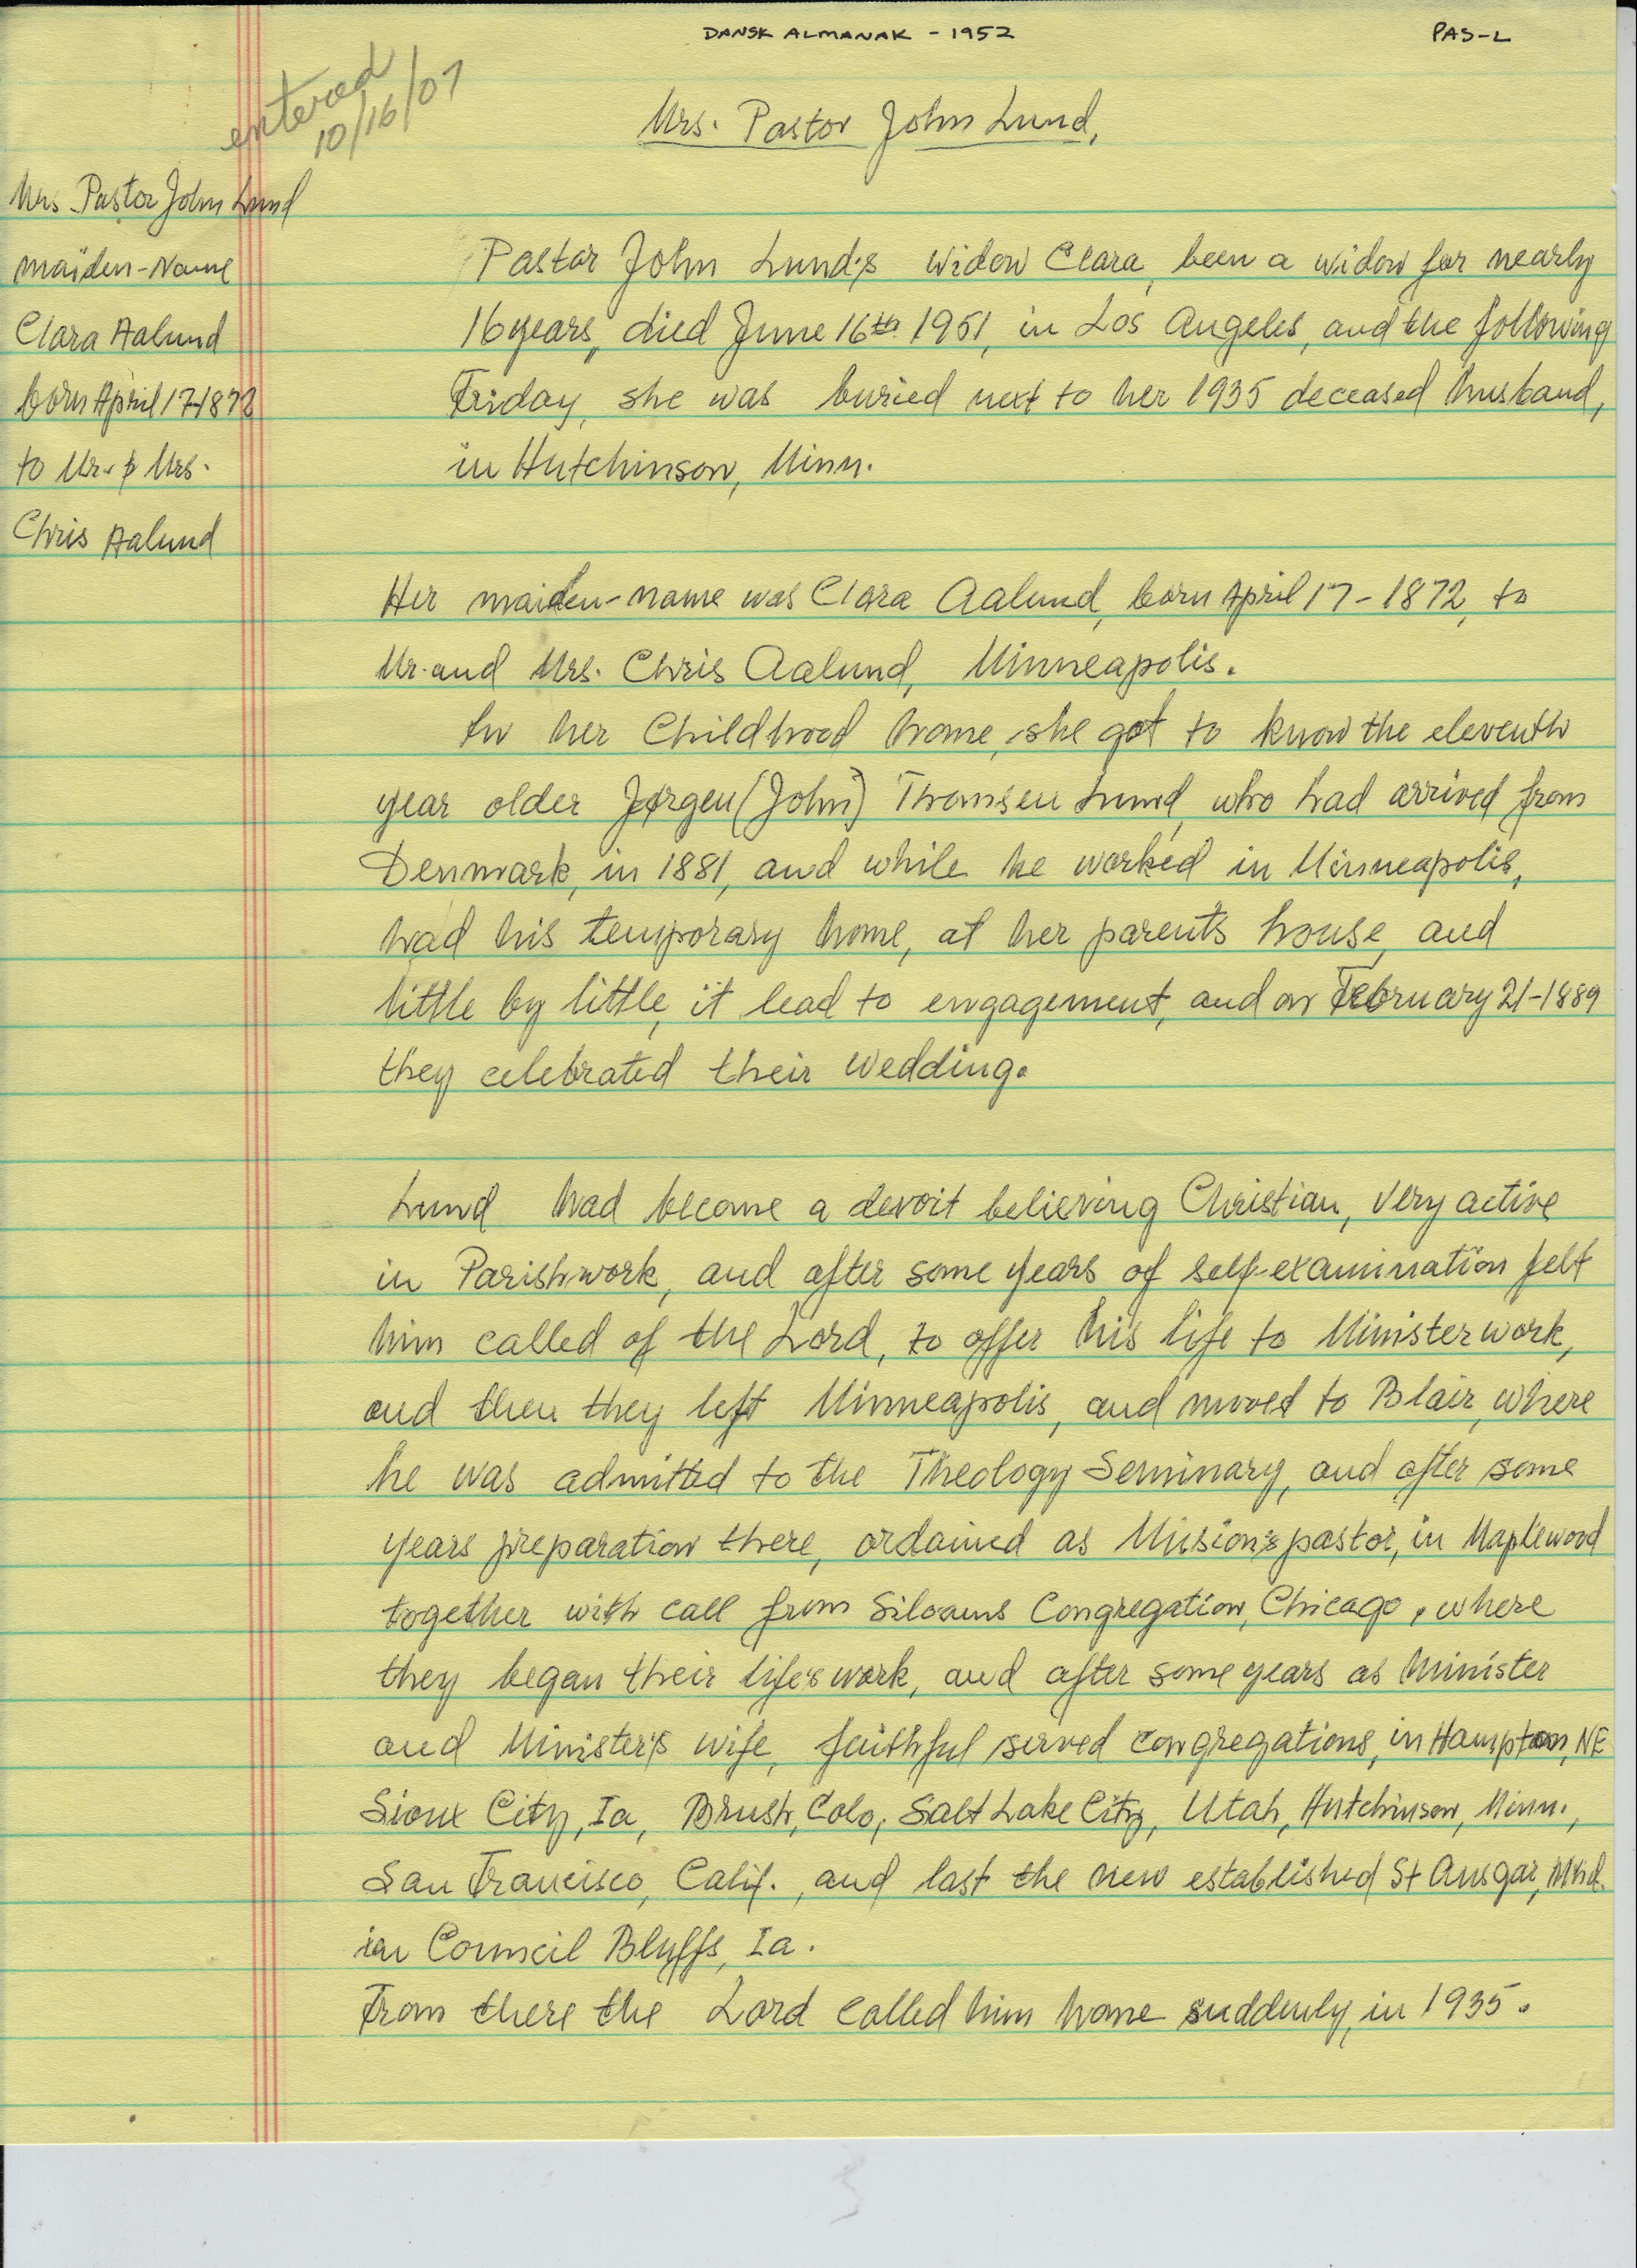 DANSK ALMANAK - 1952
PAS-L
entered
10/16/07
Mrs. Pastor John Lund,
Mrs Pastor John Lund
maiden-Name
Clara Aalund
born April 17-1872
to Mr. & Mrs.
Chris Aalund
Pastor John Lund's widow Clara, been a widow for nearly
16 years, died June 16th 1951, in Los Angeles, and the following
Friday, she was buried next to her 1935 deceased husband,
in Hutchinson, Minn.
Her maiden-name was Clara Aalund, born April 17-1872, to
Mr. and Mrs. Chris Aalund, Minneapolis.
In her Childhood home, she got to know the eleventh
year older Jørgen (John) Thomsen Lund, who had arrived from
Denmark, in 1881, and while he worked in Minneapolis,
had his temporary home, at her parents house, and
little by little, it lead to engagement, and on February 21-1889
they celebrated their wedding.
Lund had become a devoit believing Christian, very active
in Parishwork, and after some years of self-examination felt
him called of the Lord, to offer his life to Ministerwork,
and then they left Minneapolis, and moved to Blair, where
he was admitted to the Theology Seminary, and after some
years preparation there, ordained as Mision's pastor, in Maplewood
together with call from Siloams Congregation, Chicago, where
they began their life's work, and after some years as Minister
and Minister's wife, faithful served congregations, in Hampton, NE
Sioux City, Ia, Brush, Colo, Salt Lake City, Utah, Hutchinson, Minn.,
San Francisco, Calif., and last the new established St Ansgar, Mhd.
in Council Bluffs, Ia.
From there the Lord called him home suddenly, in 1935.